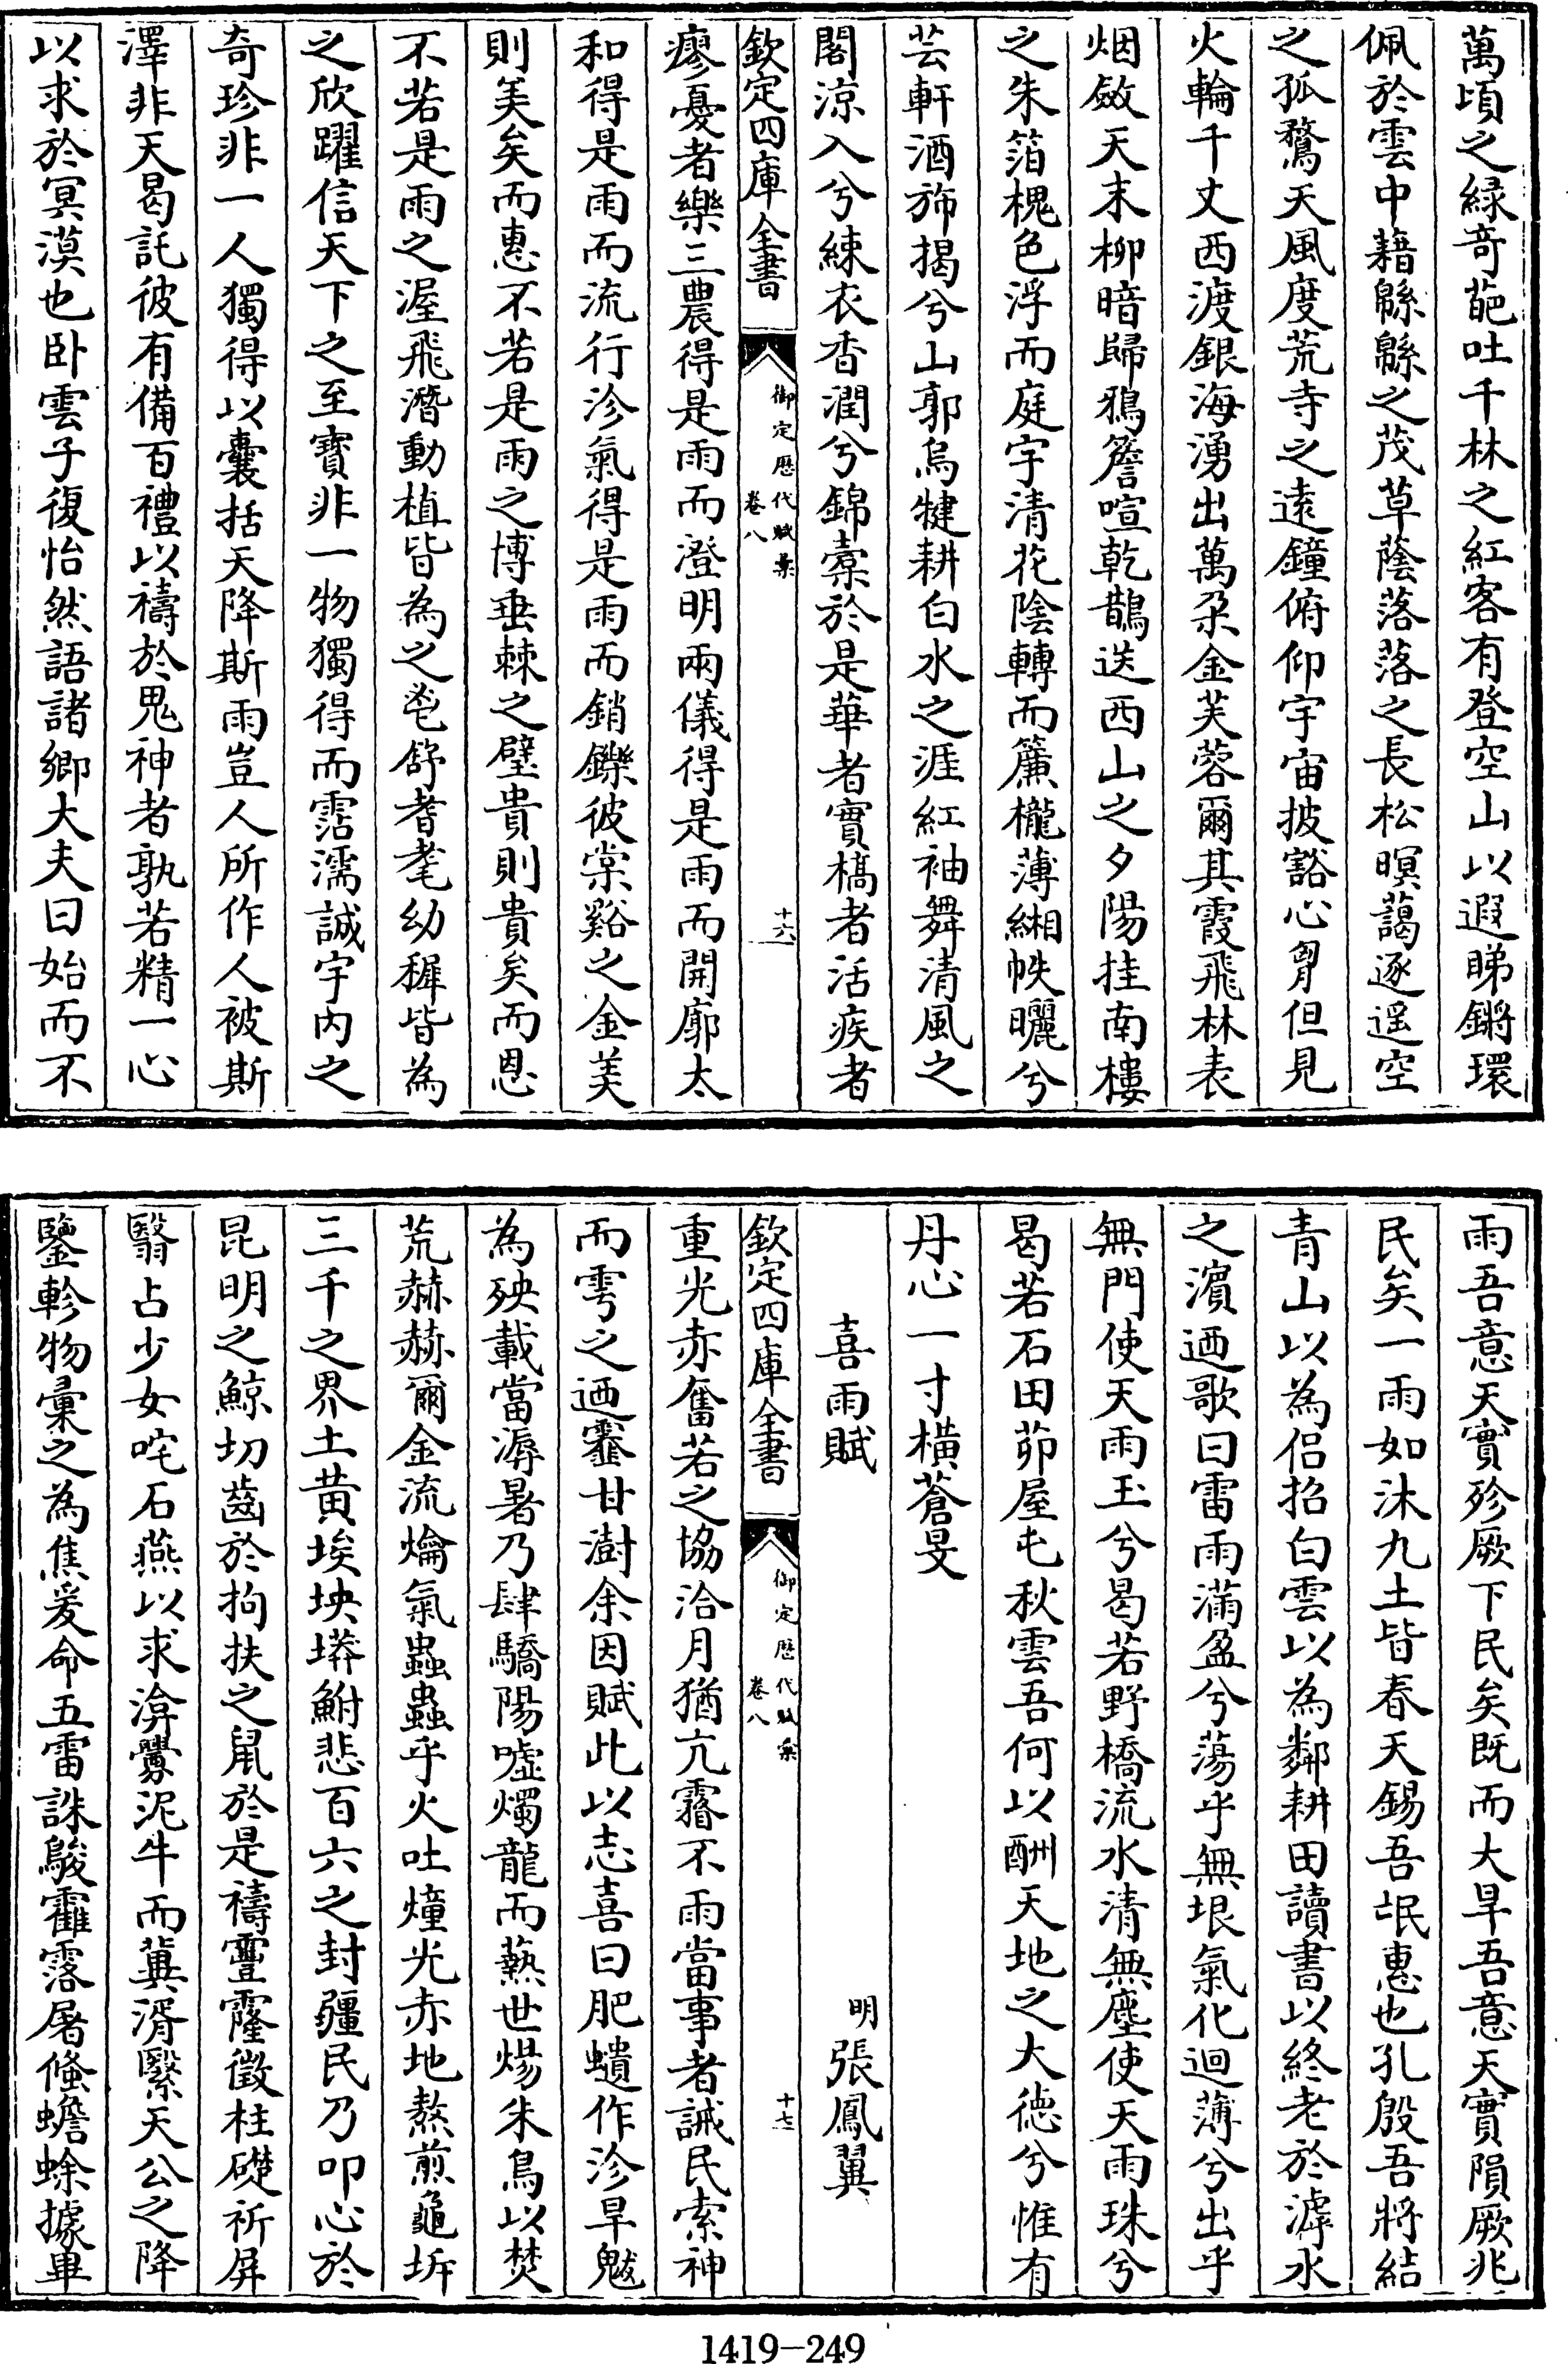 萬頃之緑奇葩吐千林之紅客有登空山以遐睇鏘環
佩於雲中藉緜緜之茂草蔭落落之長松暝藹逐遥空
之孤鶩天風度荒寺之遠鐘俯仰宇宙披豁心胷但見
火輪千丈西渡銀海湧出萬朶金芙蓉爾其霞飛林表
烟斂天末柳暗歸鴉簷喧乾鵲送西山之夕陽挂南樓
之朱箔槐色浮而庭宇清花陰轉而簾櫳薄緗帙曬兮
芸軒酒斾揭兮山郭烏犍耕白水之涯紅袖舞清風之
閣涼入兮練衣香潤兮錦槖於是華者實槁者活疾者
欽定四庫全書
御定歷代賦彙
卷八
十六
瘳憂者樂三農得是雨而澄明兩儀得是雨而開廓太
和得是雨而流行沴氣得是雨而銷鑠彼棠谿之金美
則美矣而惠不若是雨之博垂棘之璧貴則貴矣而恩
不若是雨之渥飛潛動植皆為之鬯舒耆耄幼穉皆為
之欣躍信天下之至寳非一物獨得而霑濡誠宇内之
奇珍非一人獨得以囊括天降斯雨豈人所作人被斯
澤非天曷託彼有備百禮以禱於鬼神者孰若精一心
以求於冥漠也卧雲子復怡然語諸卿大夫曰始而不
雨吾意天實殄厥下民矣既而大旱吾意天實隕厥兆
民矣一雨如沐九土皆春天錫吾氓惠也孔殷吾將結
青山以為侣招白雲以為鄰耕田讀書以終老於滹水
之濵迺歌曰雷雨滿盈兮蕩乎無垠氣化迴薄兮出乎
無門使天雨玉兮曷若野橋流水清無塵使天雨珠兮
曷若石田茆屋屯秋雲吾何以酬天地之大德兮惟有
丹心一寸横蒼旻
喜雨賦
明張鳳翼
欽定四庫全書
御定歷代賦彙
卷八
十七
重光赤奮若之協洽月猶亢霿不雨當事者誡民索神
而雩之迺霿甘澍余因賦此以志喜曰肥蠵作沴旱魃
為殃載當溽暑乃肆驕陽嘘燭龍而爇世煬朱鳥以焚
荒赫赫爾金流爚氣蟲蟲乎火吐燑光赤地熬煎龜坼
三千之界土黄埃坱壒鮒悲百六之封疆民乃叩心於
昆明之鯨切齒於拘扶之鼠於是禱靈霳徵柱礎祈屏
翳占少女咤石燕以求渰爨泥牛而冀湑緊天公之降
鑒軫物彙之為焦爰命五雷誅駿霍霿屠倏蟾蜍據畢
1419-249